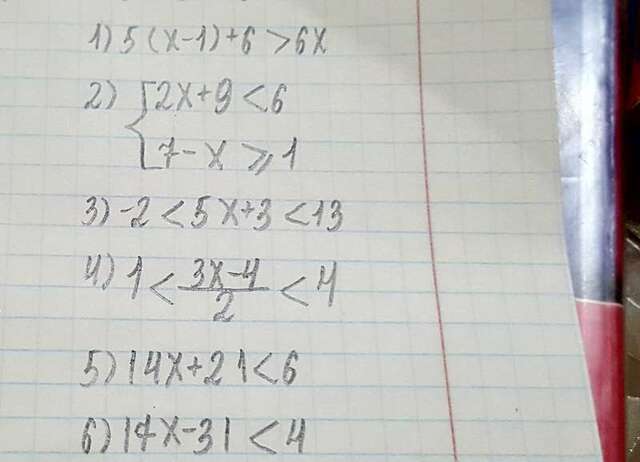 1) 5(x-1)+6>6x
2) {2x+9<6
7-x⩾1
3) -2<5x+3<13
4) 1<(3x-4)/2<4
5) |4x+2|<6
6) |7x-3|<4